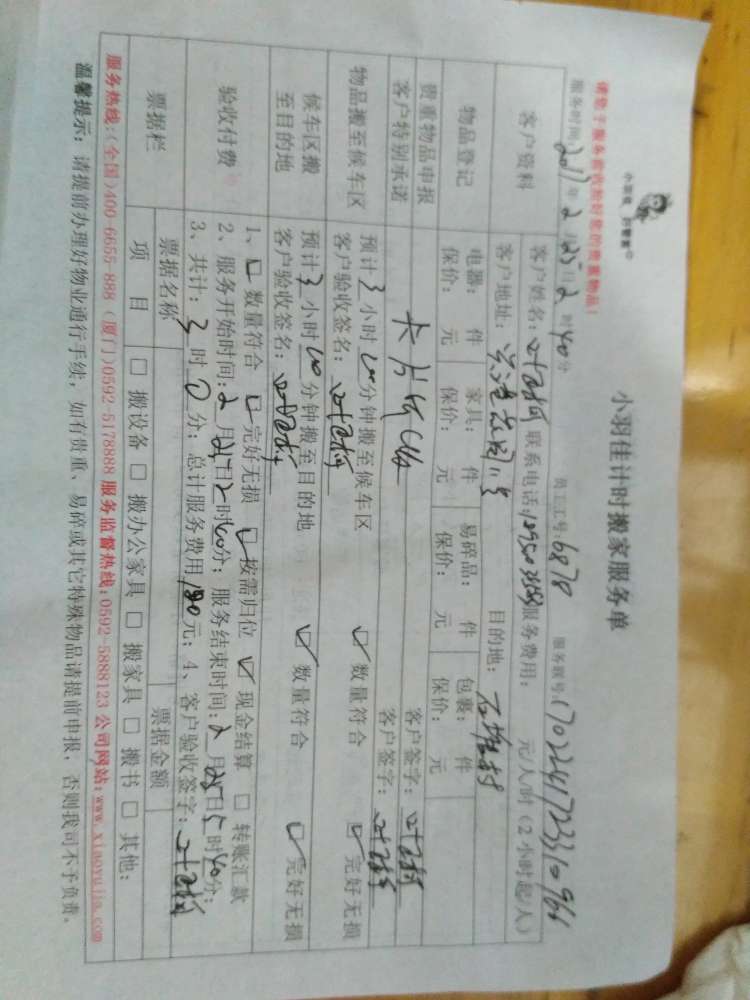 小羽佳计时搬家服务单
小羽佳
请您于服务前收拾好您的贵重物品!
服务时间:2017年2月25日2时40分 员工工号:6870 服务账号:170224172331096
客户资料
客户姓名: 联系电话: 服务费用: 元/人/时(2小时起/人)
客户地址: 目的地:
物品登记
电器: 件 家具: 件 易碎品: 件 包裹: 件
保价: 元 保价: 元 保价: 元 保价: 元
贵重物品申报 客户签字:
客户特别承诺 客户签字:
物品搬至候车区
预计3小时 分钟搬至候车区 ☑数量符合 ☑完好无损
客户验收签名:
候车区搬
至目的地
预计3小时 分钟搬至目的地 ☑数量符合 ☑完好无损
客户验收签名:
验收付费
1、☑数量符合 ☑完好无损 ☑按需归位 ☑现金结算 □转账汇款
2、服务开始时间:2月25日2时40分;服务结束时间:2月25日5时40分;
3、共计:3时0分;总计服务费用 元;4、客户验收签字:
票据栏
票据名称 票据金额
项目 □搬设备 □搬办公家具 □搬家具 □搬书 □其他:
服务热线:(全国)400-6655-888 (厦门)0592-5178888 服务监督热线:0592-5888123 公司网站:www.xiaoyujia.com
温馨提示:请提前办理好物业通行手续,如有贵重、易碎或其它特殊物品请提前申报,否则我司不予负责。